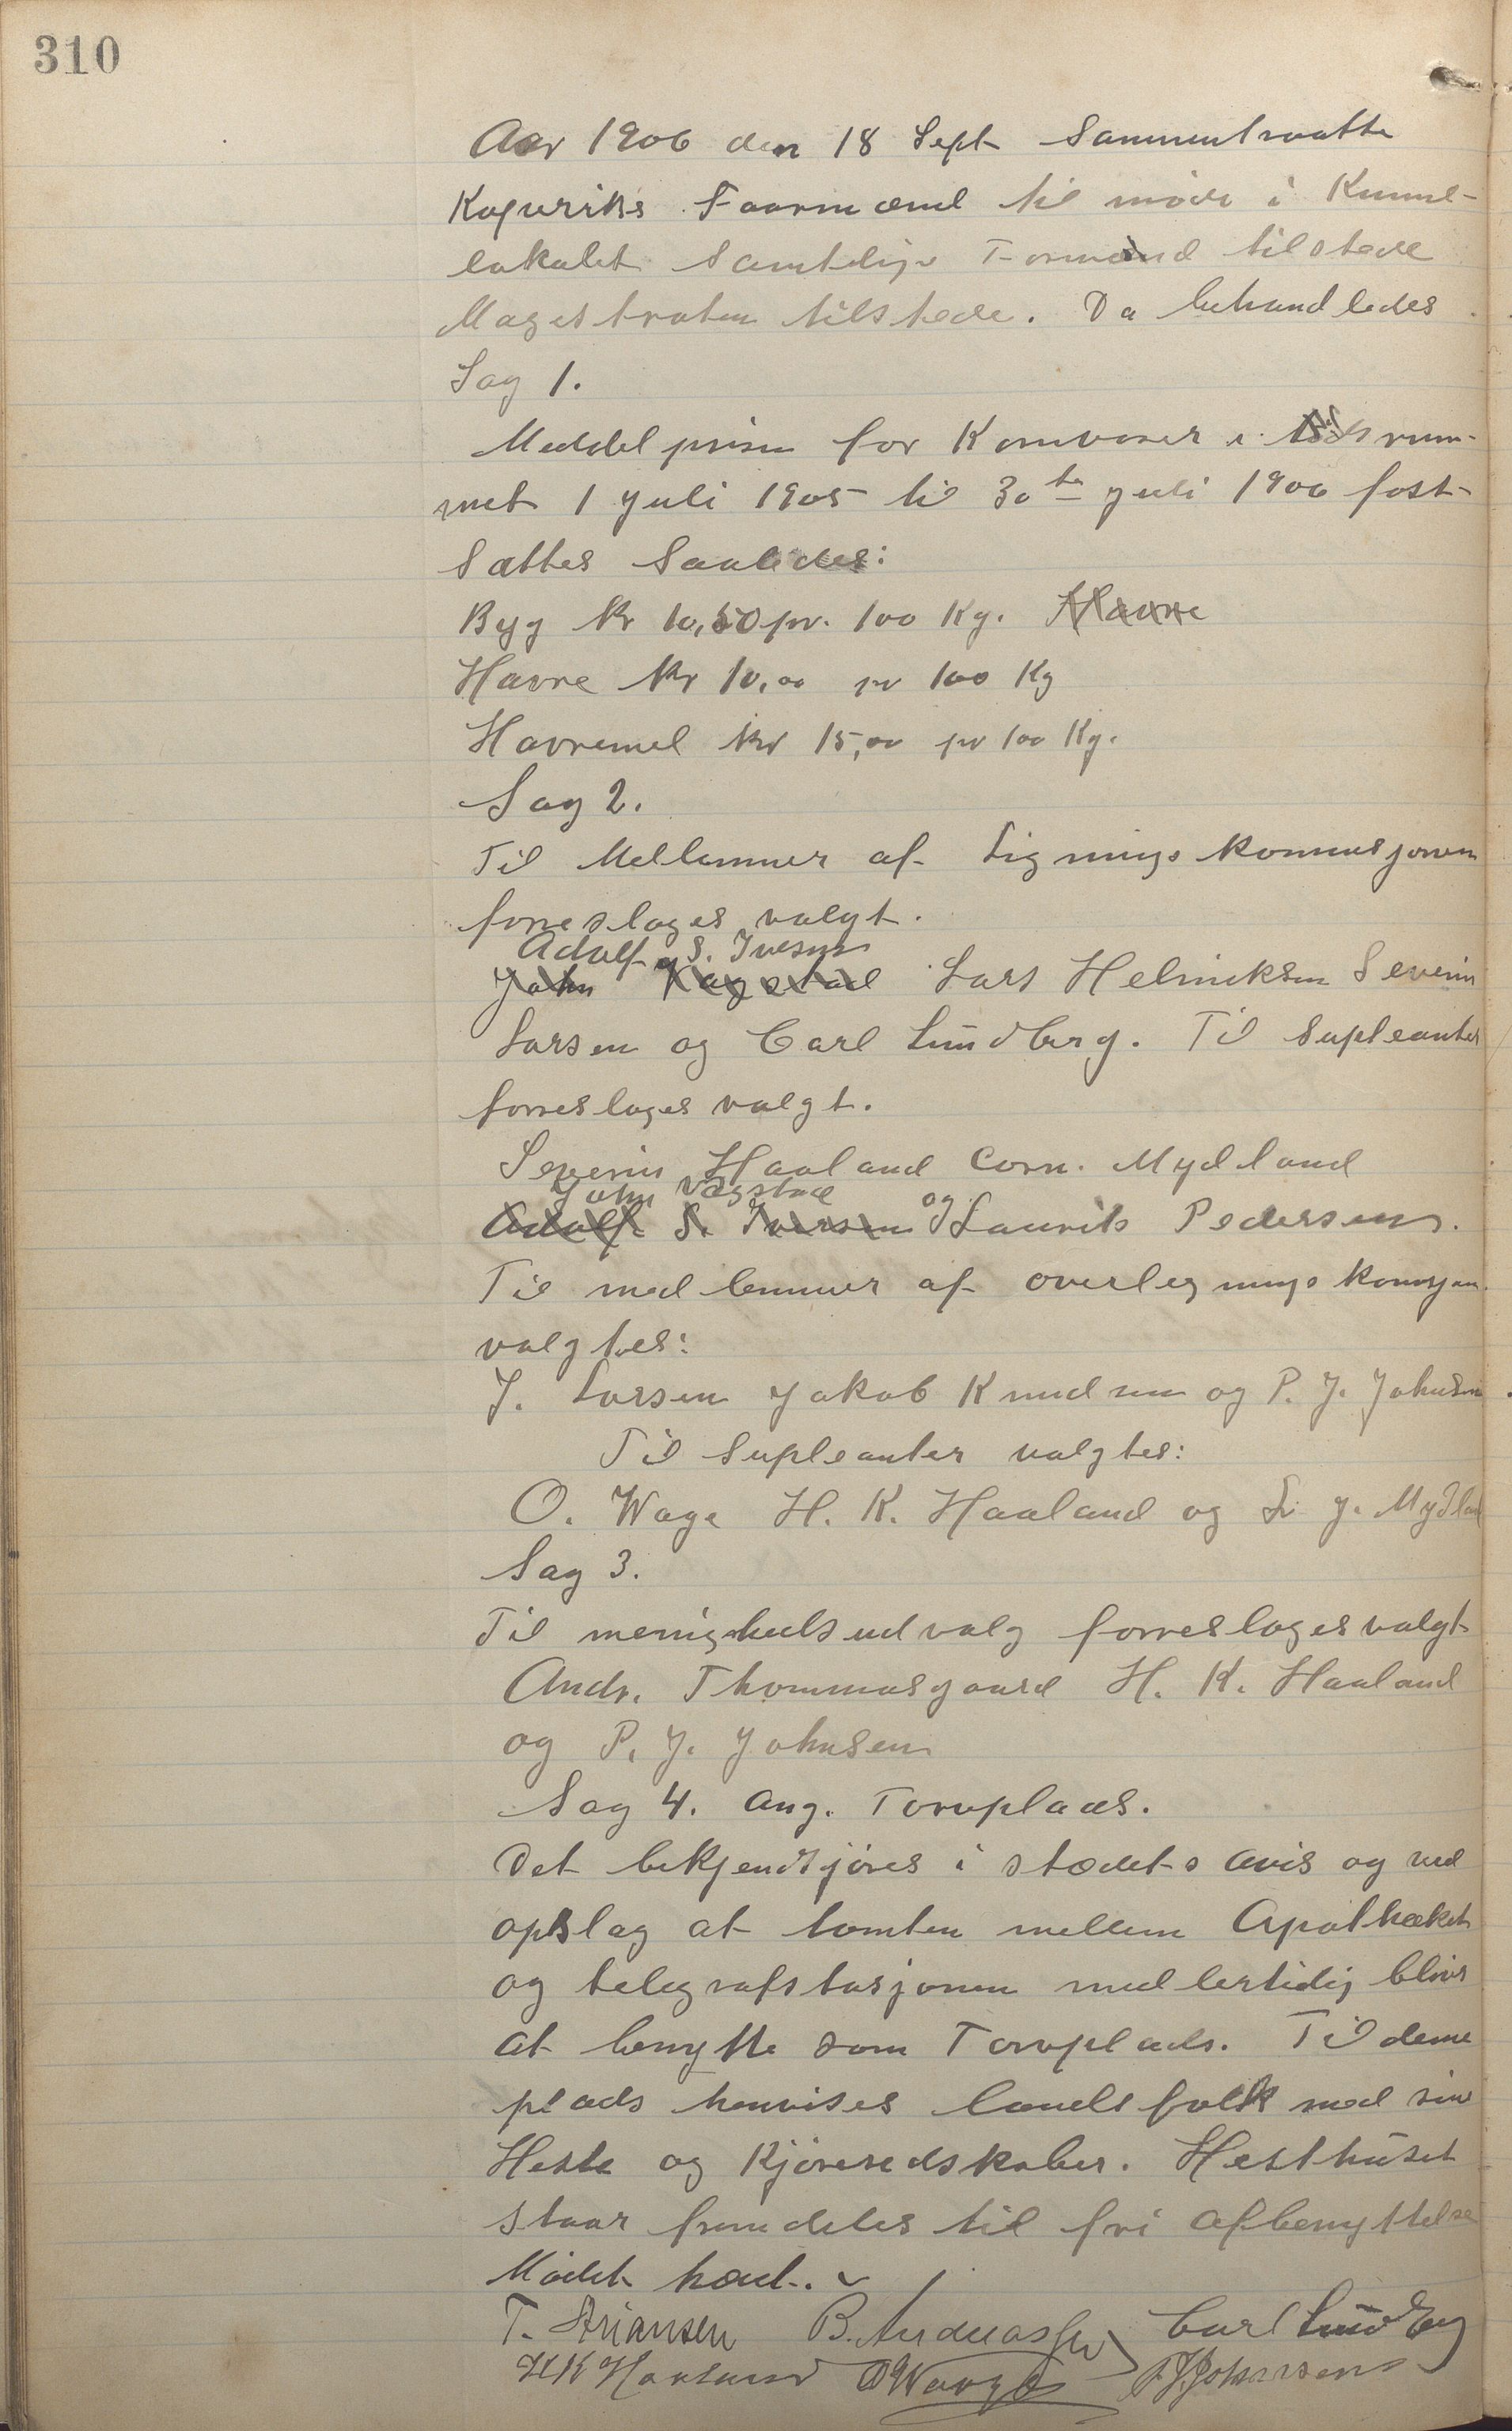 310
Aar 1906 den 18 Sept Sammentraatte
Kopveriks Faarmænd til møde i Kumel-
lokalet Samtlige Formænd tilstede
Magestraten tilstede. Da behandledes
Sag 1.
Meddelprisen for Kornvarer i Tidsrum-
met 1 juli 1905 til 30te juli 1906 fast-
sattes Saaledes:
Byg Kr 10,50 pr. 100 Kg. Havre
Havre Kr 10,00 pr 100 Kg
Havremel Kr 15,00 pr 100 Kg.
Sag 2.
Til Mellemmer af Ligningskommisjonen
forreslages valgt.
Adolf S. Iversen
John Vagstad Lars Helmiksen Severin
Larsen og Carl Lundberg. Til Supleanter
forreslages valgt.
Severin Haaland Corn. Mydland
John Vagstad og
Adolf S. Iversen Laurits Pedersen.
Til medlemmer af overlegningskomisjon
valgtes:
J. Larsen Jakob Knudsen og P. J. Johnsen.
Til Supleanter valgtes:
O. Wage H. K. Haaland og L. J. Mydland
Sag 3.
Til menighedsudvalg forreslages valgt
Andr. Thommasgaard H. K. Haaland
og P. J. Johnsen
Sag 4. Ang. Torvplads.
Det bekjendtjøres i stædets avis og ved
opslag at tomten mellem Apotheket
og telegrafstasjonen medlertidig bliver
at benytte som Torvplads. Til denne
plads henvises landsfolk med sine
Heste og Kjøreredskaber. Hesthuset
staar fremdeles til fri afbenyttelse
Mødet hævet.
T. Stiansen B. Andreassen Carl Lundberg
H K Haaland O Waage P. J. Johannsen